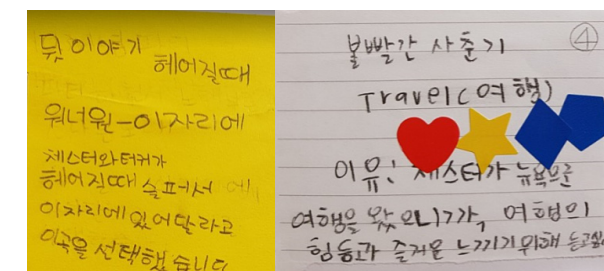 뒷이야기
헤어질때
워너원-이자리에
체스터와터커가
헤어진때 슬퍼서 에
이자리에있어달라고
이곡을 선택했습니다
④
볼빨간 사춘기
Travel(여행)
이유: 체스터가 뉴욕으로
여행을 왔으니가, 여행의
힘듬과 즐거움 느끼기위해 듣고싶